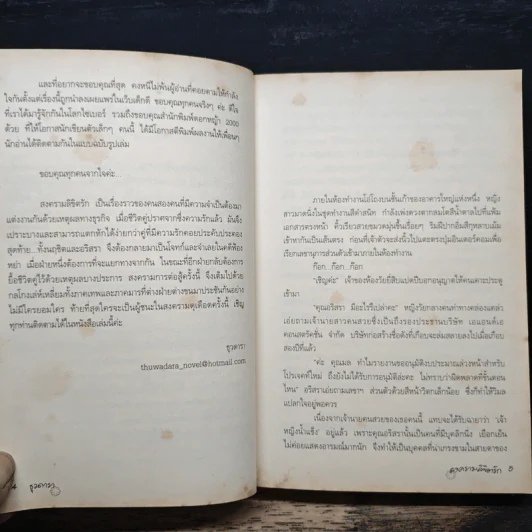 และที่อยากจะขอบคุณที่สุด คงหนีไม่พ้นผู้อ่านที่คอยตามให้กำลัง
ใจกันตั้งแต่เรื่องนี้ถูกนำลงเผยแพร่ในเว็บเด็กดี ขอบคุณทุกคนจริงๆ ค่ะ ดีใจ
ที่เราได้มารู้จักกันในโลกไซเบอร์ รวมถึงขอบคุณสำนักพิมพ์ดอกหญ้า 2000
ด้วย ที่ให้โอกาสนักเขียนตัวเล็กๆ คนนี้ ได้มีโอกาสตีพิมพ์ผลงานให้เพื่อนๆ
นักอ่านได้ติดตามกันในแบบฉบับรูปเล่ม
ขอบคุณทุกคนจากใจค่ะ...
สงครามลิขิตรัก เป็นเรื่องราวของคนสองคนที่มีความจำเป็นต้องมา
แต่งงานกันด้วยเหตุผลทางธุรกิจ เมื่อชีวิตคู่ปราศจากซึ่งความรักแล้ว มันจึง
เปราะบางและสามารถแตกหักได้ง่ายกว่าคู่ที่มีความรักคอยประคับประคอง
สุดท้าย...ทั้งภูชิตและอริสรา จึงต้องกลายมาเป็นโจทก์และจำเลยในคดีฟ้อง
หย่า เมื่อฝ่ายหนึ่งต้องการที่จะแยกทางจากกัน ในขณะที่อีกฝ่ายกลับต้องการ
ยื้อชีวิตคู่ไว้ด้วยเหตุผลบางประการ สงครามการต่อสู้ครั้งนี้ จึงเต็มไปด้วย
กลโกงเล่ห์เหลี่ยมทั้งภาคเทพและภาคมารที่ต่างฝ่ายต่างขนมาประชันกันอย่าง
ไม่มีใครยอมใคร ท้ายที่สุดใครจะเป็นผู้ชนะในสงครามดุเดือดครั้งนี้ เชิญ
ทุกท่านติดตามได้ในหนังสือเล่มนี้ค่ะ
ธุวดารา
thuwadara_novel@hotmail.com
4 ธุวดารา
ภายในห้องทำงานโอ่โถงบนชั้นเก้าของอาคารใหญ่แห่งหนึ่ง หญิง
สาวมาดนิ่งในชุดทำงานสีดำสนิท กำลังเพ่งดวงตากลมโตสีน้ำตาลไปที่แฟ้ม
เอกสารตรงหน้า คิ้วเรียวสวยขมวดมุ่นขึ้นเรื่อยๆ ริมฝีปากอิ่มสีกุหลาบเม้ม
เข้าหากันเป็นเส้นตรง ก่อนที่เจ้าตัวจะส่งนิ้วไปแตะตรงปุ่มอินเตอร์คอมเพื่อ
เรียกเลขานุการส่วนตัวเข้ามาภายในห้องทำงาน
ก๊อก...ก๊อก...ก๊อก
“เชิญค่ะ” เจ้าของห้องวัยยี่สิบแปดปีบอกอนุญาตให้คนเคาะประตู
เข้ามา
“คุณอริสรา มีอะไรรึเปล่าคะ” หญิงวัยกลางคนท่าทางคล่องแคล่ว
เอ่ยถามเจ้านายสาวคนสวยซึ่งเป็นถึงรองประธานบริษัท เอแอนด์เอ
คอนสตรัคชั่น จำกัด บริษัทก่อสร้างชื่อดังที่เกือบจะล่มสลายลงไปเมื่อเกือบ
สองปีที่แล้ว
“ค่ะ คุณมล ทำไมรายงานขออนุมัติงบประมาณล่วงหน้าสำหรับ
โปรเจคที่ใหม่ ถึงยังไม่ได้รับการอนุมัติล่ะคะ ไม่ทราบว่าผิดพลาดที่ขั้นตอน
ไหน” อริสราเอ่ยถามเลขาฯ ส่วนตัวด้วยสีหน้าวิตกเล็กน้อย ซึ่งก็ทำให้วิมล
แปลกใจอยู่พอควร
เนื่องจากเจ้านายคนสวยของเธอคนนี้ แทบจะได้รับฉายาว่า ‘เจ้า
หญิงน้ำแข็ง’ อยู่แล้ว เพราะคุณอริสรานั้นเป็นคนที่มีบุคลิกนิ่ง เยือกเย็น
ไม่ค่อยแสดงอารมณ์มากนัก จึงทำให้เป็นบุคคลที่น่าเกรงขามในสายตาของ
สงครามลิขิตรัก 5